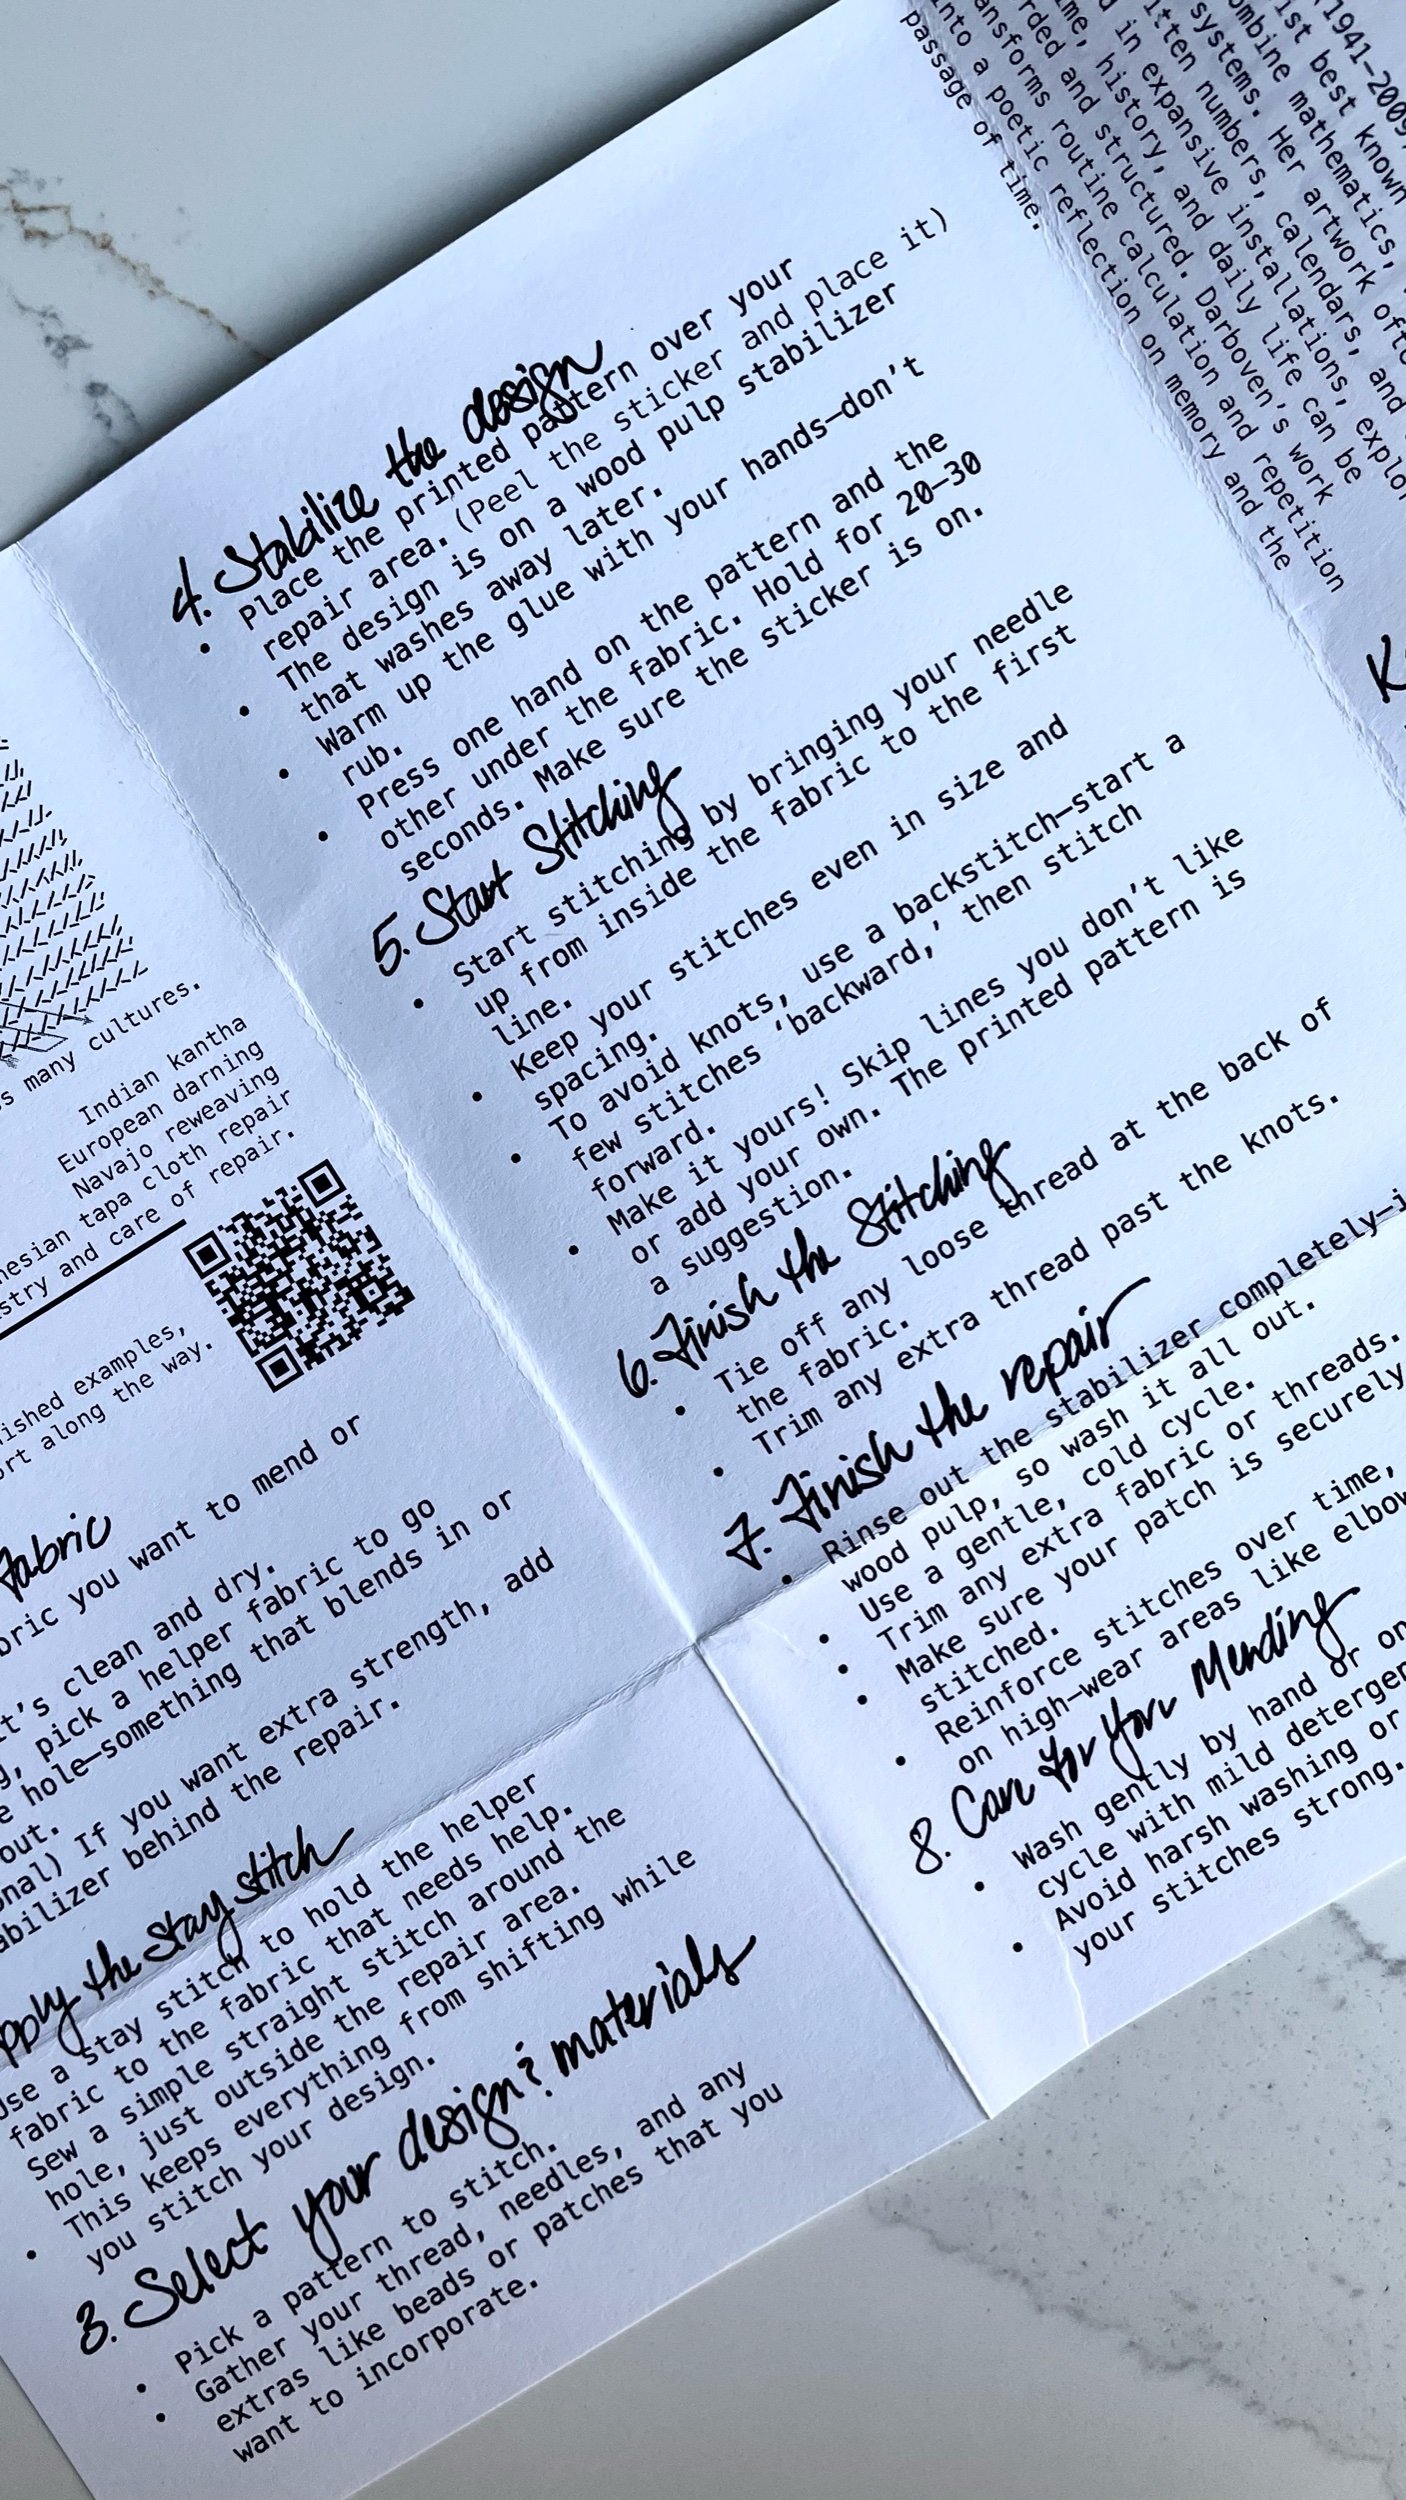 s many cultures.
Indian kantha
European darning
Navajo reweaving
nesian tapa cloth repair
stry and care of repair.
ished examples,
ort along the way.
Fabric
bric you want to mend or
t's clean and dry.
g, pick a helper fabric to go
e hole—something that blends in or
out.
onal) If you want extra strength, add
abilizer behind the repair.
pply the Stay Stitch
Use a stay stitch to hold the helper
fabric to the fabric that needs help.
Sew a simple straight stitch around the
hole, just outside the repair area.
• This keeps everything from shifting while
you stitch your design.
3. Select your design & materials
• Pick a pattern to stitch.
• Gather your thread, needles, and any
extras like beads or patches that you
want to incorporate.
4. Stabilize the design
• Place the printed pattern over your
repair area. (Peel the sticker and place it)
• The design is on a wood pulp stabilizer
that washes away later.
• Warm up the glue with your hands—don't
rub.
• Press one hand on the pattern and the
other under the fabric. Hold for 20—30
seconds. Make sure the sticker is on.
5. Start Stitching
• Start stitching by bringing your needle
up from inside the fabric to the first
line.
• Keep your stitches even in size and
spacing.
• To avoid knots, use a backstitch—start a
few stitches 'backward,' then stitch
forward.
• Make it yours! Skip lines you don't like
or add your own. The printed pattern is
a suggestion.
6. Finish the Stitching
• Tie off any loose thread at the back of
the fabric.
• Trim any extra thread past the knots.
7. Finish the repair
• Rinse out the stabilizer completely—i
wood pulp, so wash it all out.
• Use a gentle, cold cycle.
• Trim any extra fabric or threads.
• Make sure your patch is securely
stitched.
• Reinforce stitches over time,
on high—wear areas like elbow
8. Care for Your Mending
• Wash gently by hand or on
cycle with mild deterge
• Avoid harsh washing or
your stitches strong.
(1941—2009
ist best known
ombine mathematics,
systems. Her artwork ofte
itten numbers, calendars, and
d in expansive installations, explo
me, history, and daily life can be
rded and structured. Darboven's work
ansforms routine calculation and repetition
into a poetic reflection on memory and the
passage of time.